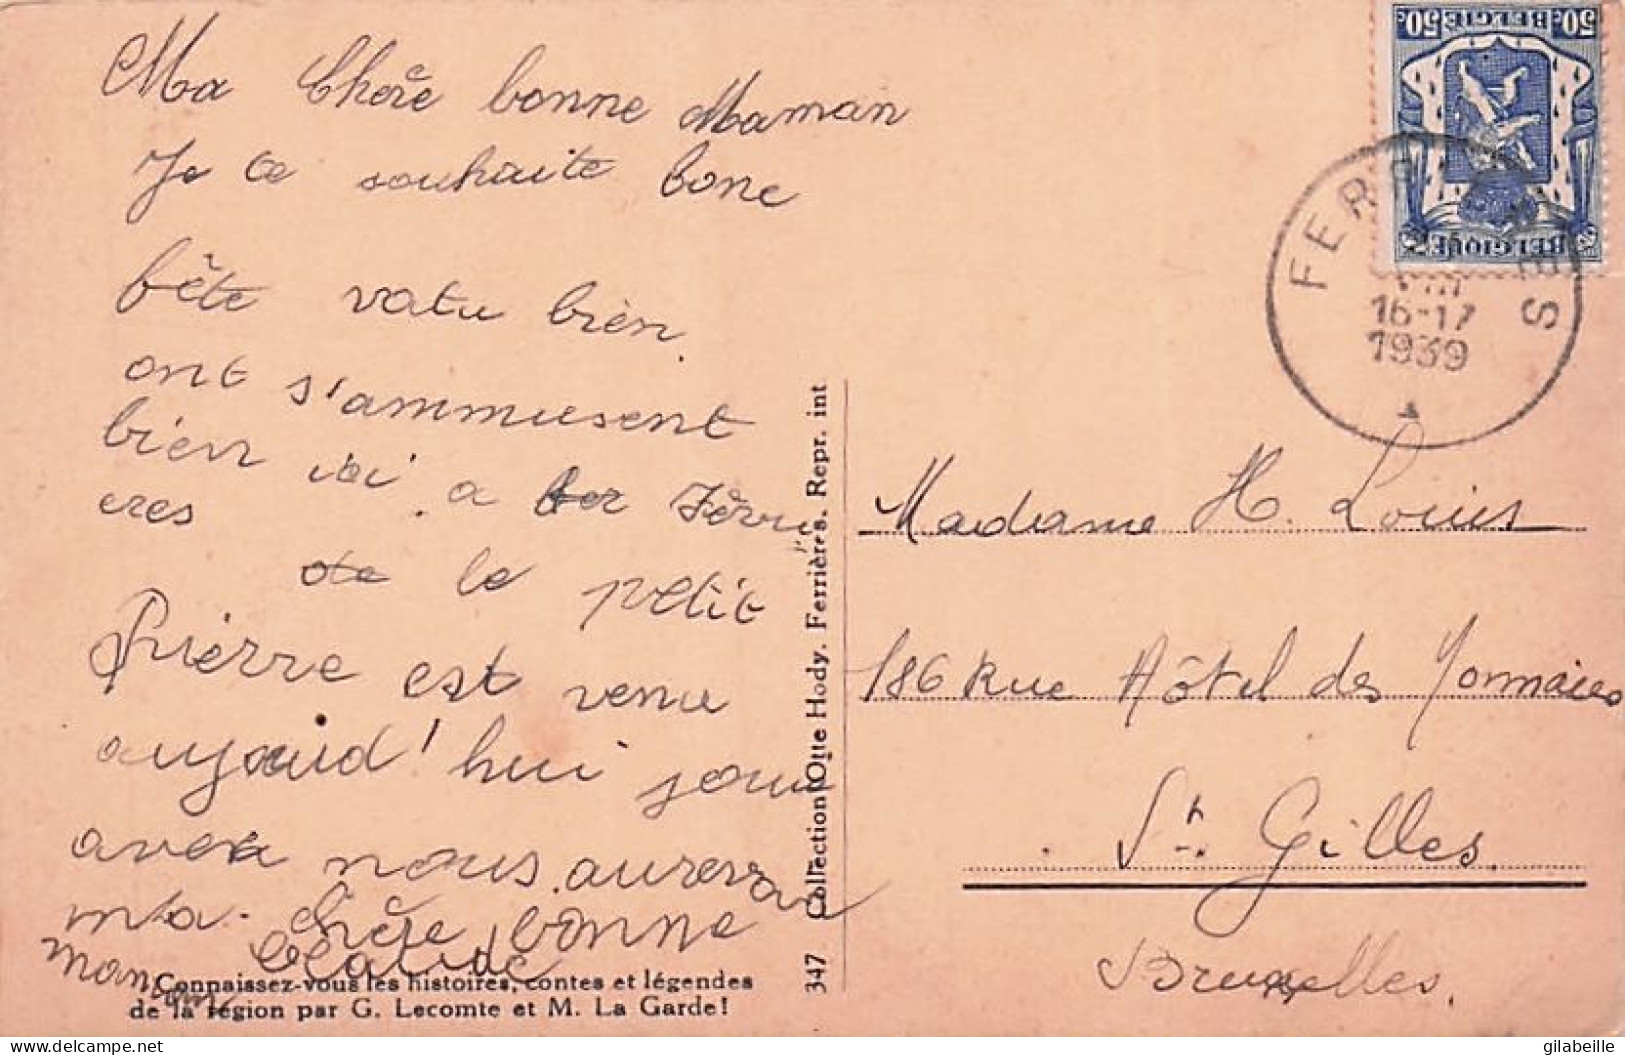 Ma Chère bonne Maman
Je te souhaite bone
fête vatu bien
ont s'ammusent
bien ici a Ferri
eres
le petit
Pierre est venu
aujourd'hui joué
avec nous. aurevoir
ma chère bonne
Maman
Claude
Connaissez-vous les histoires, contes et légendes
de la région par G. Lecomte et M. La Garde!
347 Collection Otte Hody. Ferrières. Repr. int
BELGIE 50c 50c
BELGIQUE-BELGIE
FERRIERES
VIII
16-17
1939
Madame H. Louis
186 Rue Hôtel des Monnaies
St. Gilles
Bruxelles.
delcampe.net
gilabeille